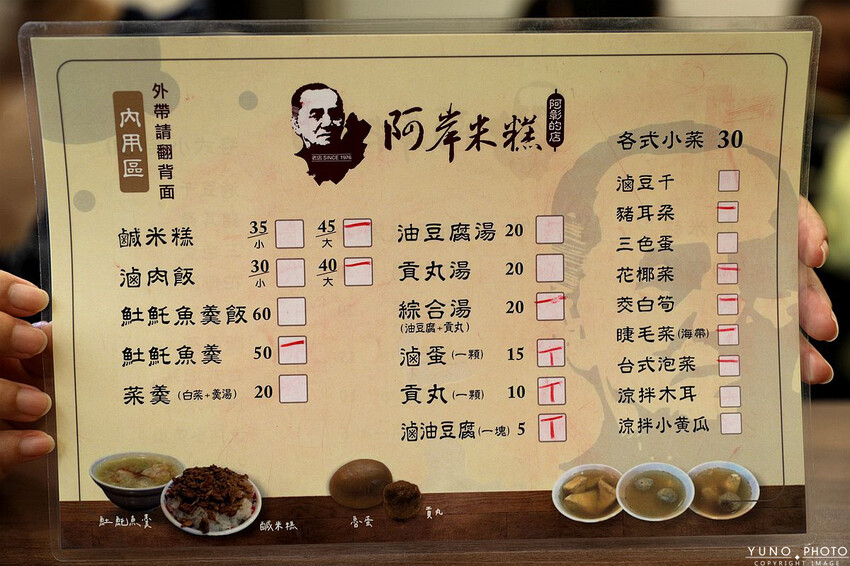 外帶請翻背面
內用區
老店 SINCE 1976
阿岸米糕
阿彰的店
鹹米糕 35 小 45 大
滷肉飯 30 小 40 大
𩵚魠魚羹飯 60
𩵚魠魚羹 50
菜羹 (白菜+羹湯) 20
油豆腐湯 20
貢丸湯 20
綜合湯 20
(油豆腐+貢丸)
滷蛋 (一顆) 15
貢丸 (一顆) 10
滷油豆腐 (一塊) 5
各式小菜 30
滷豆干
豬耳朶
三色蛋
花椰菜
茭白筍
睫毛菜 (海帶)
台式泡菜
涼拌木耳
涼拌小黃瓜
𩵚魠魚羹
鹹米糕
魯蛋
貢丸
YUNO PHOTO
COPYRIGHT IMAGE